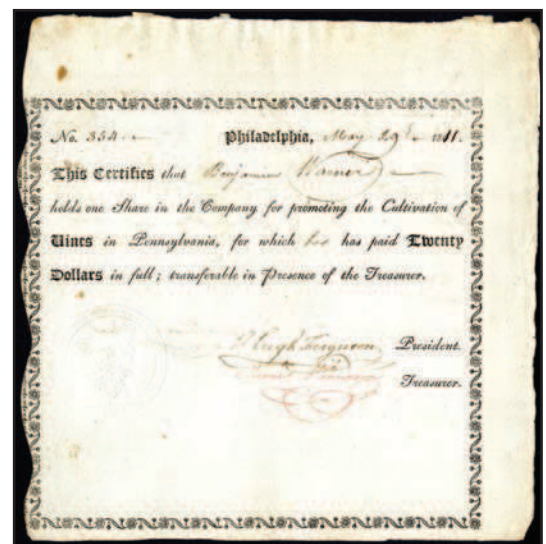 No. 354. Philadelphia, May 29th 1811.
This Certifies that Benjamin Warner
holds one Share in the Company for promoting the Cultivation of
Vines in Pennsylvania, for which he has paid Twenty
Dollars in full; transferable in Presence of the Treasurer.
Hugh Ferguson President.
Treasurer.